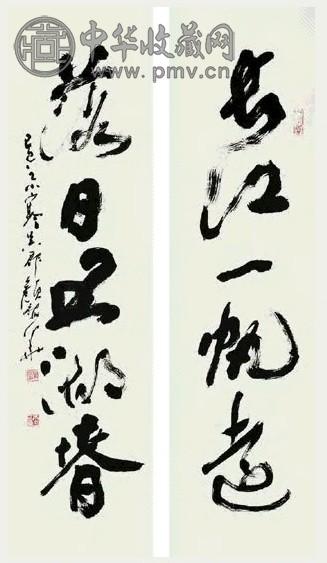 中华收藏网
www.pmv.cn
长江一帆远
落日五湖春